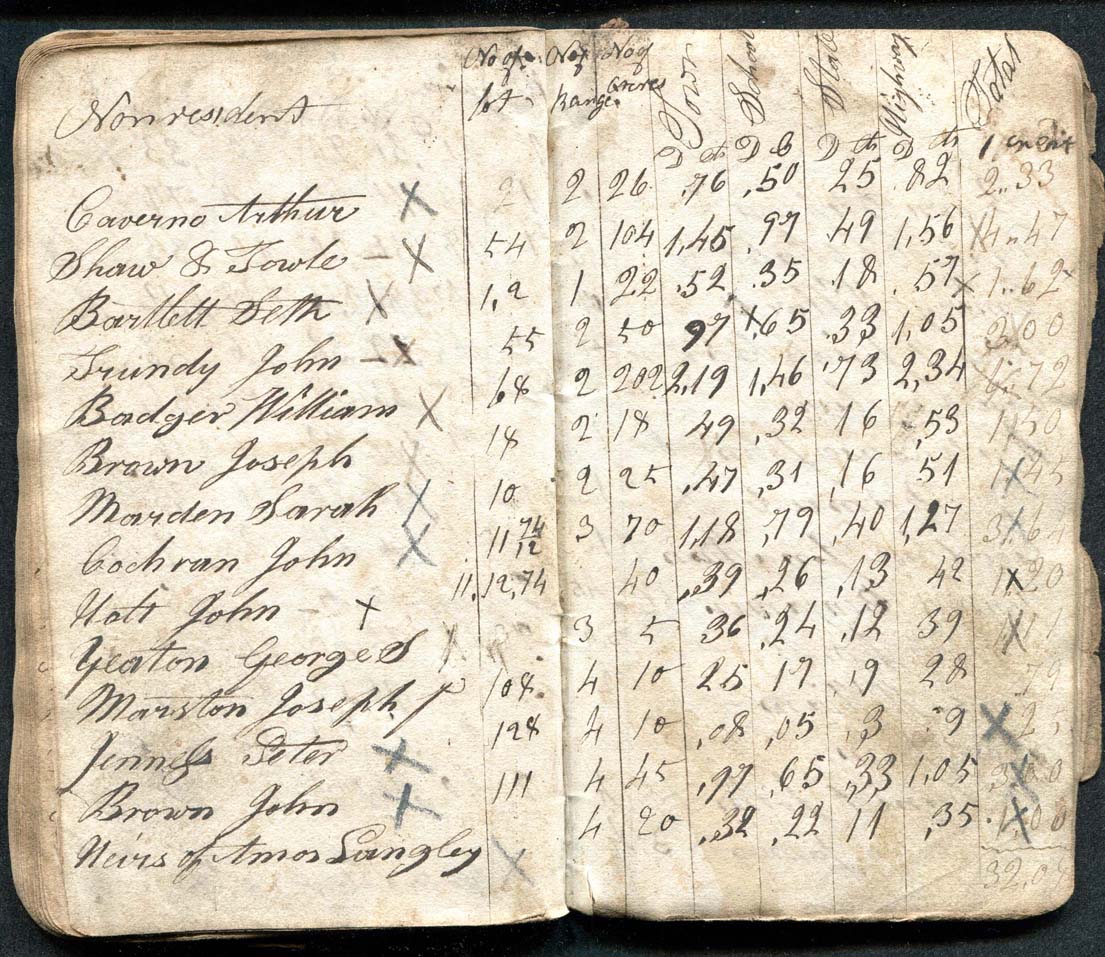 Nonresident No of lot No of Range No of Acres Town School State Highway Total
D Cts D C D Cts D Cts 1 cent
Caverno Arthur X 2 2 26 .76 .50 25 .82 2..33
Shaw & Towle - X 54 2 104 1,45 .97 .49 1,56 X 4..47
Bartlett Seth X 1,2 1 22 .52 .35 .18 .57 X 1..62
Trundy John - X 55 2 50 97 X .65 .33 1,05 3,00
Badger William X 68 2 202 2,19 1,46 .73 2,34 X 6.72
Brown Joseph X 18 2 18 49 .32 16 .53 1,50
Marden Sarah X 10 2 25 .47 .31 .16 51 1X45
Cochran John X 11 74 12 3 70 1,18 .79 .40 1,27 3,64
Hott John - X 11,12,74 40 .39 .26 .13 42 1X20
Yeaton George S X 3 5 36 .24 .12 39 1X11
Marston Joseph 108. 4 10 25 17 .9 28 79
Jenness Peter X 128 4 10 .08 .05 .3 .9 X 25
Brown John X 111 4 45 .97 .65 .33 1,05 3,00
Heirs of Amos Langley X 4 20 .32 .22 11 ,35 1X00